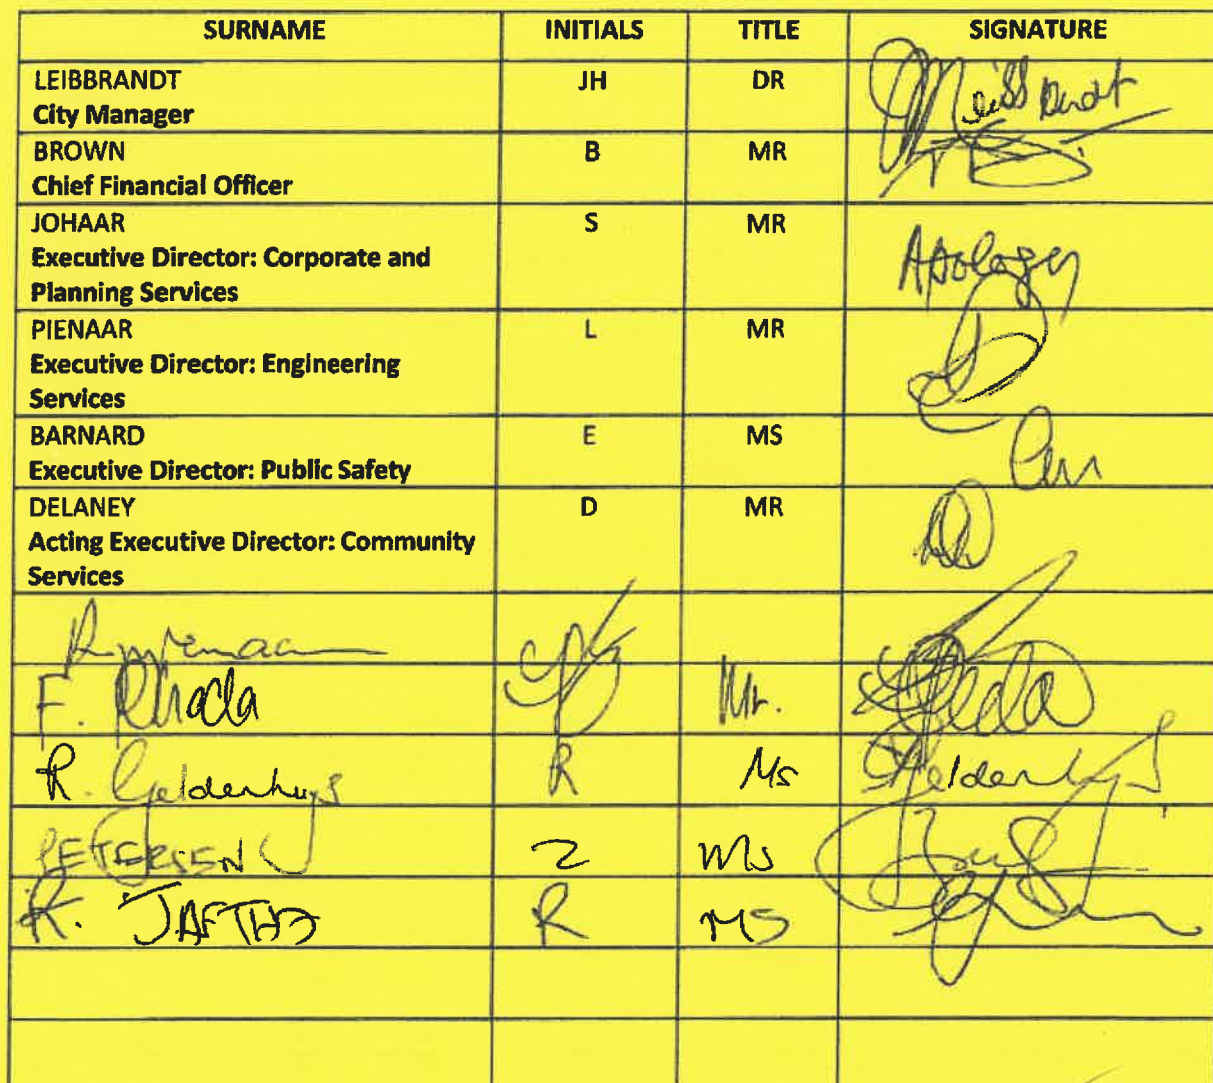 SURNAME INITIALS TITLE SIGNATURE
LEIBBRANDT JH DR
City Manager
BROWN B MR
Chief Financial Officer
JOHAAR S MR
Executive Director: Corporate and
Planning Services
Apology
PIENAAR L MR
Executive Director: Engineering
Services
BARNARD E MS
Executive Director: Public Safety
DELANEY D MR
Acting Executive Director: Community
Services
F. Rhoda Mr.
R. Geldenhuys R Ms Geldenhuys
PETERSEN Z Ms
R. JAFTHA R MS